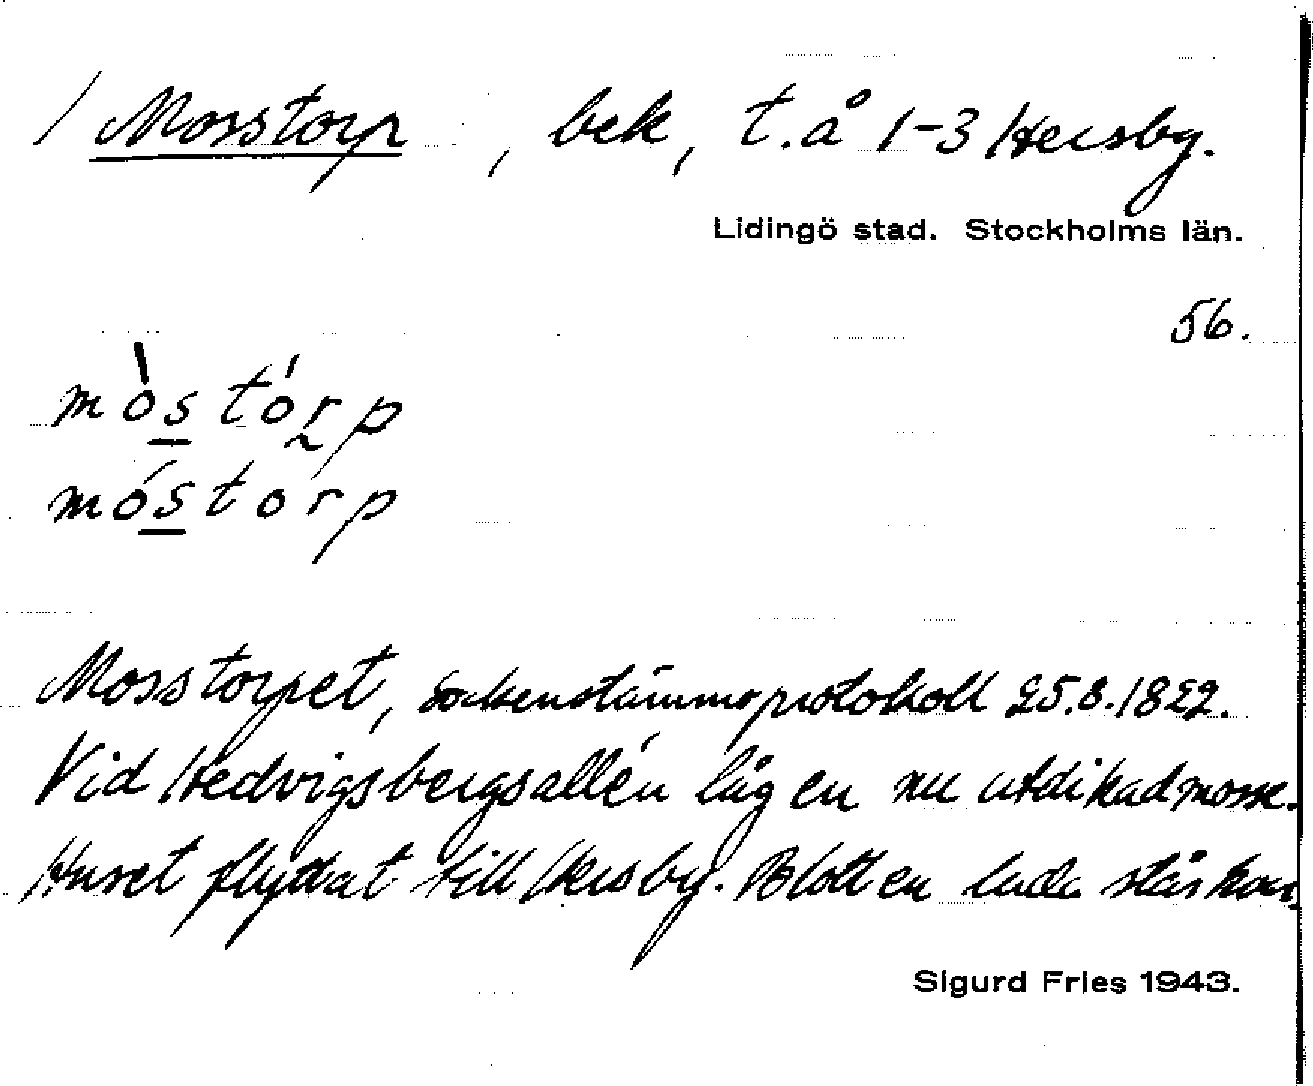 / Mosstorp, bek, t.å 1-3 Hersby.
Lidingö stad. Stockholms län.
56.
mòstórp
móstorp
Mosstorpet, sockenstämmoprotokoll 25.8.1822.
Vid Hedvigsbergsallén låg en nu utdikad mosse.
Huset flyttat till Hersby. Blott en lada står kvar.
Sigurd Fries 1943.